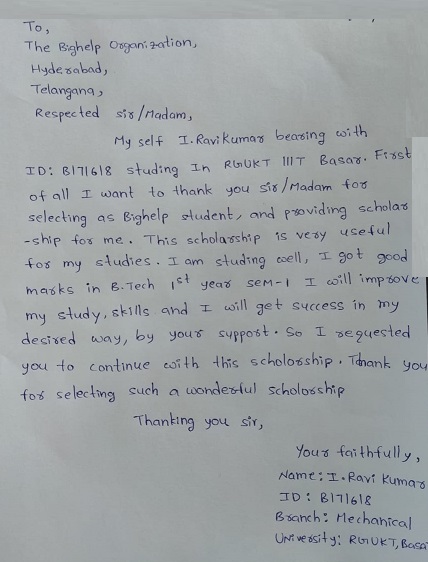 To,
The Bighelp Organization,
Hyderabad,
Telangana,
Respected sir/Madam,
My self I. Ravi Kumar bearing with
ID: B171618 studing In RGUKT IIIT Basar. First
of all I want to thank you sir/Madam for
selecting as Bighelp student, and providing scholar
-ship for me. This scholarship is very useful
for my studies. I am studing well, I got good
marks in B.Tech 1st year SEM-1 I will improve
my study, skills and I will get success in my
desired way, by your support. So I requested
you to continue with this scholorship. Thank you
for selecting such a wonderful scholorship
Thanking you sir,
Your faithfully,
Name: I. Ravi Kumar
ID: B171618
Branch: Mechanical
University: RGUKT, Basa